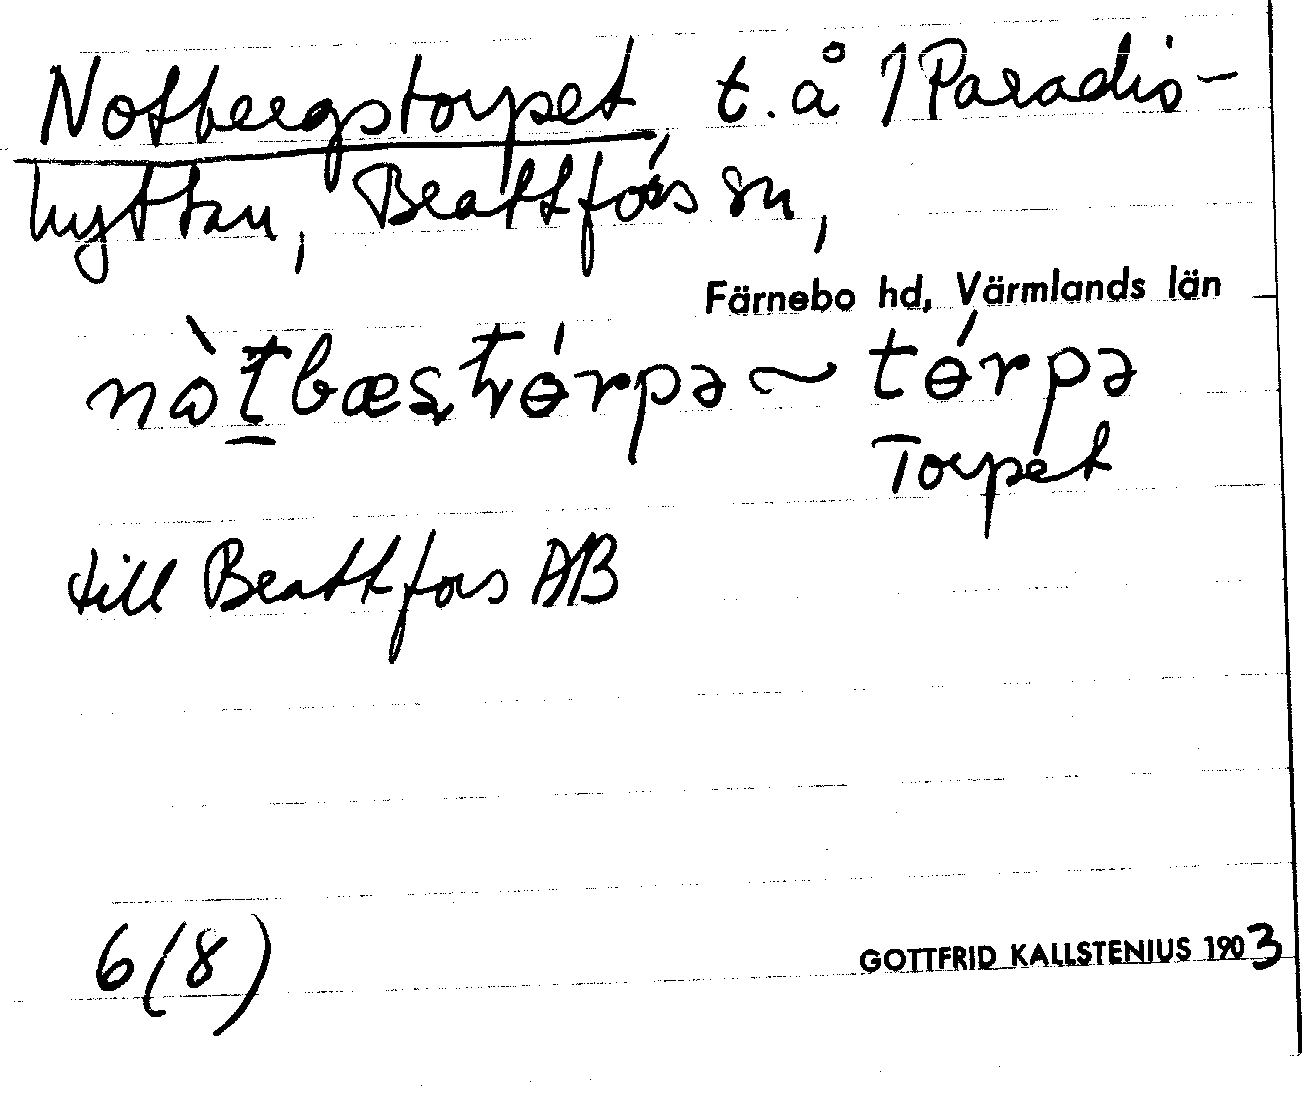 Notbergstorpet, t. å 1 Paradis-
hyttan, Beattfors sn,
Färnebo hd, Värmlands län
nòt̠bæstrórpə ~ tɵ́rpə
Torpet
till Beattfors AB
6(8)
GOTTFRID KALLSTENIUS 1903